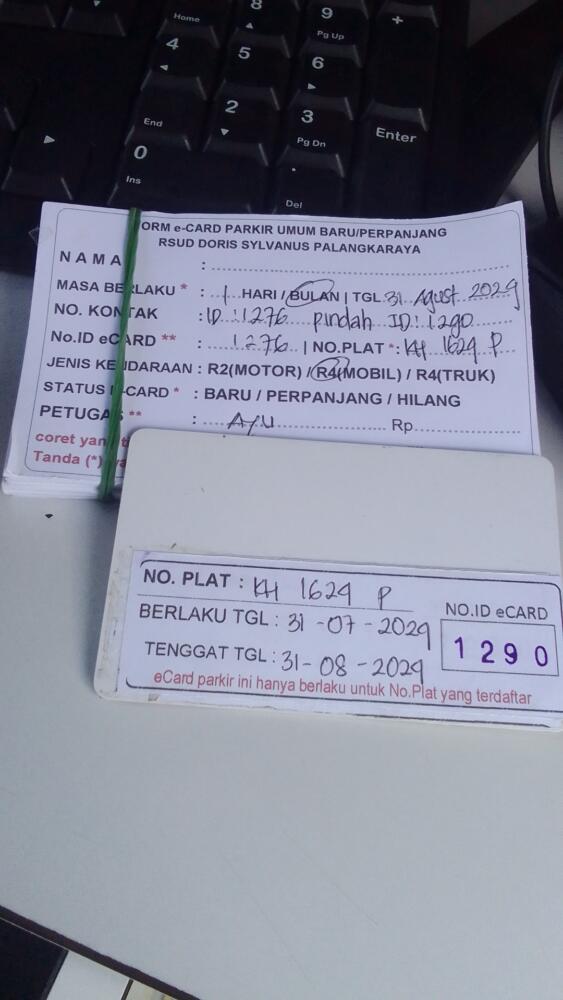 8
9
+
Home
Pg Up
4
5
6
End
2
3
Pg Dn
Enter
0
Ins
.
Del
ORM e-CARD PARKIR UMUM BARU/PERPANJANG
RSUD DORIS SYLVANUS PALANGKARAYA
NAMA :
MASA BERLAKU * : 1 HARI / BULAN | TGL 31 Agust 2024
NO. KONTAK : ID : 1276 pindah ID : 1290
No.ID eCARD ** : 1276 | NO.PLAT * : KH 1624 P
JENIS KENDARAAN : R2(MOTOR) / R4(MOBIL) / R4(TRUK)
STATUS -CARD * : BARU / PERPANJANG / HILANG
PETUGAS ** : AYU Rp
coret yan
Tanda (*)
NO. PLAT : KH 1624 P
BERLAKU TGL : 31-07-2024
NO.ID eCARD
1290
TENGGAT TGL : 31-08-2024
eCard parkir ini hanya berlaku untuk No.Plat yang terdaftar